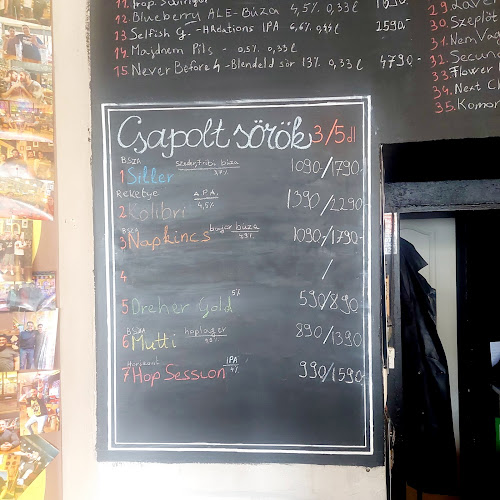 12. Blueberry ALE-Búza 4,5% 0,33 l
13 Selfish G. - HAdations IPA 6,6% 0,44 l 2590.-
14. Majdnem Pils - 0,5% 0,33 l
15 Never Before 4 - Blendeld sör 13% 0,33 l 4790.-
30. Szeplőt
31. Nem Vag
32. Secur
33. Flower
34. Next C
35. Komor
Csapolt sörök 3/5 dl
BSZA
1 Siller 3,7% 1090/1790.-
Reketye A.P.A.
2 Kolibri 4,5% 1390/2290.-
BSZA bajor búza
3 Napkincs 1090/1790-
4 /
5 Dreher Gold 5% 590/890.-
BSZA hoplager
6 Mutti 890/1390
Horizont IPA
7 Hop Session 4% 990/1590.-